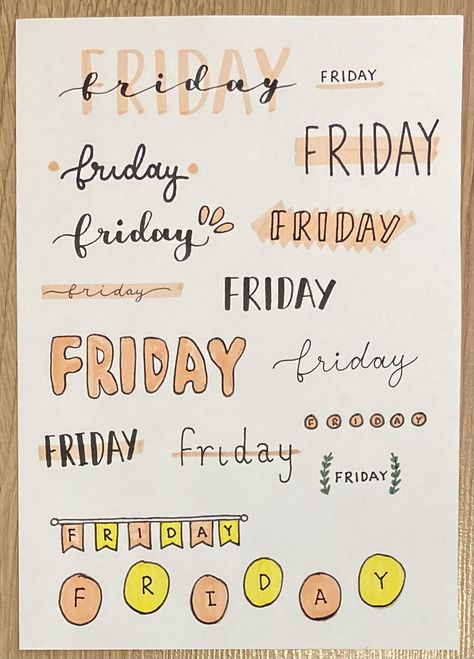 FRIDAY
friday
FRIDAY
friday
FRIDAY
friday
FRIDAY
friday
FRIDAY
FRIDAY
friday
FRIDAY
FRIDAY
friday
FRIDAY
FRIDAY
FRIDAY